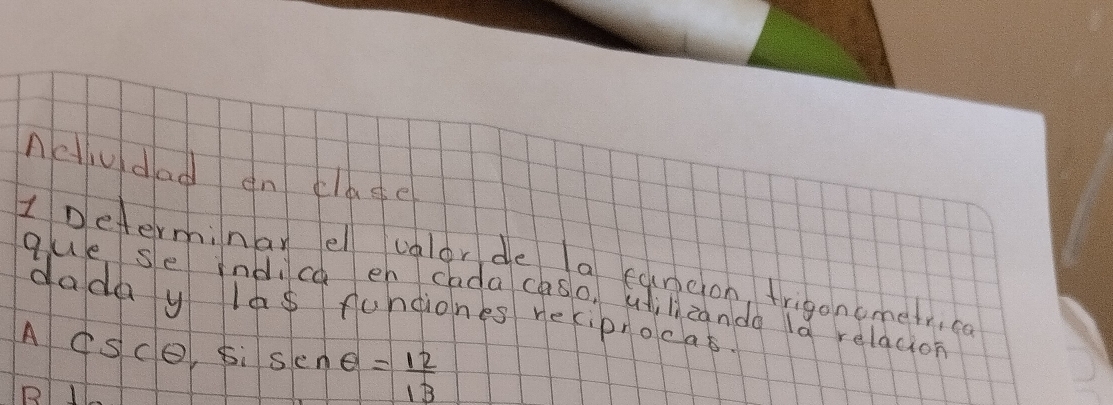 Actividad en clase
1 Determinar el valor de la función trigonometrica
que se indica en cada caso, utilizando la relación
dada y las funciones reciprocas.
A csc θ, si sen θ = 12/13
B